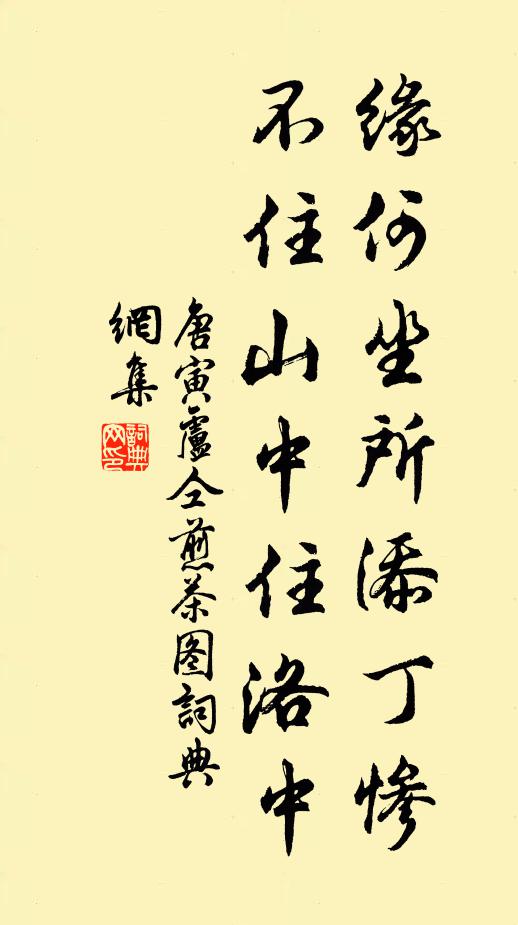 缘何坐所添丁惨
不住山中住洛中
唐寅盧仝煎茶图詞典
網集
詞典
网印